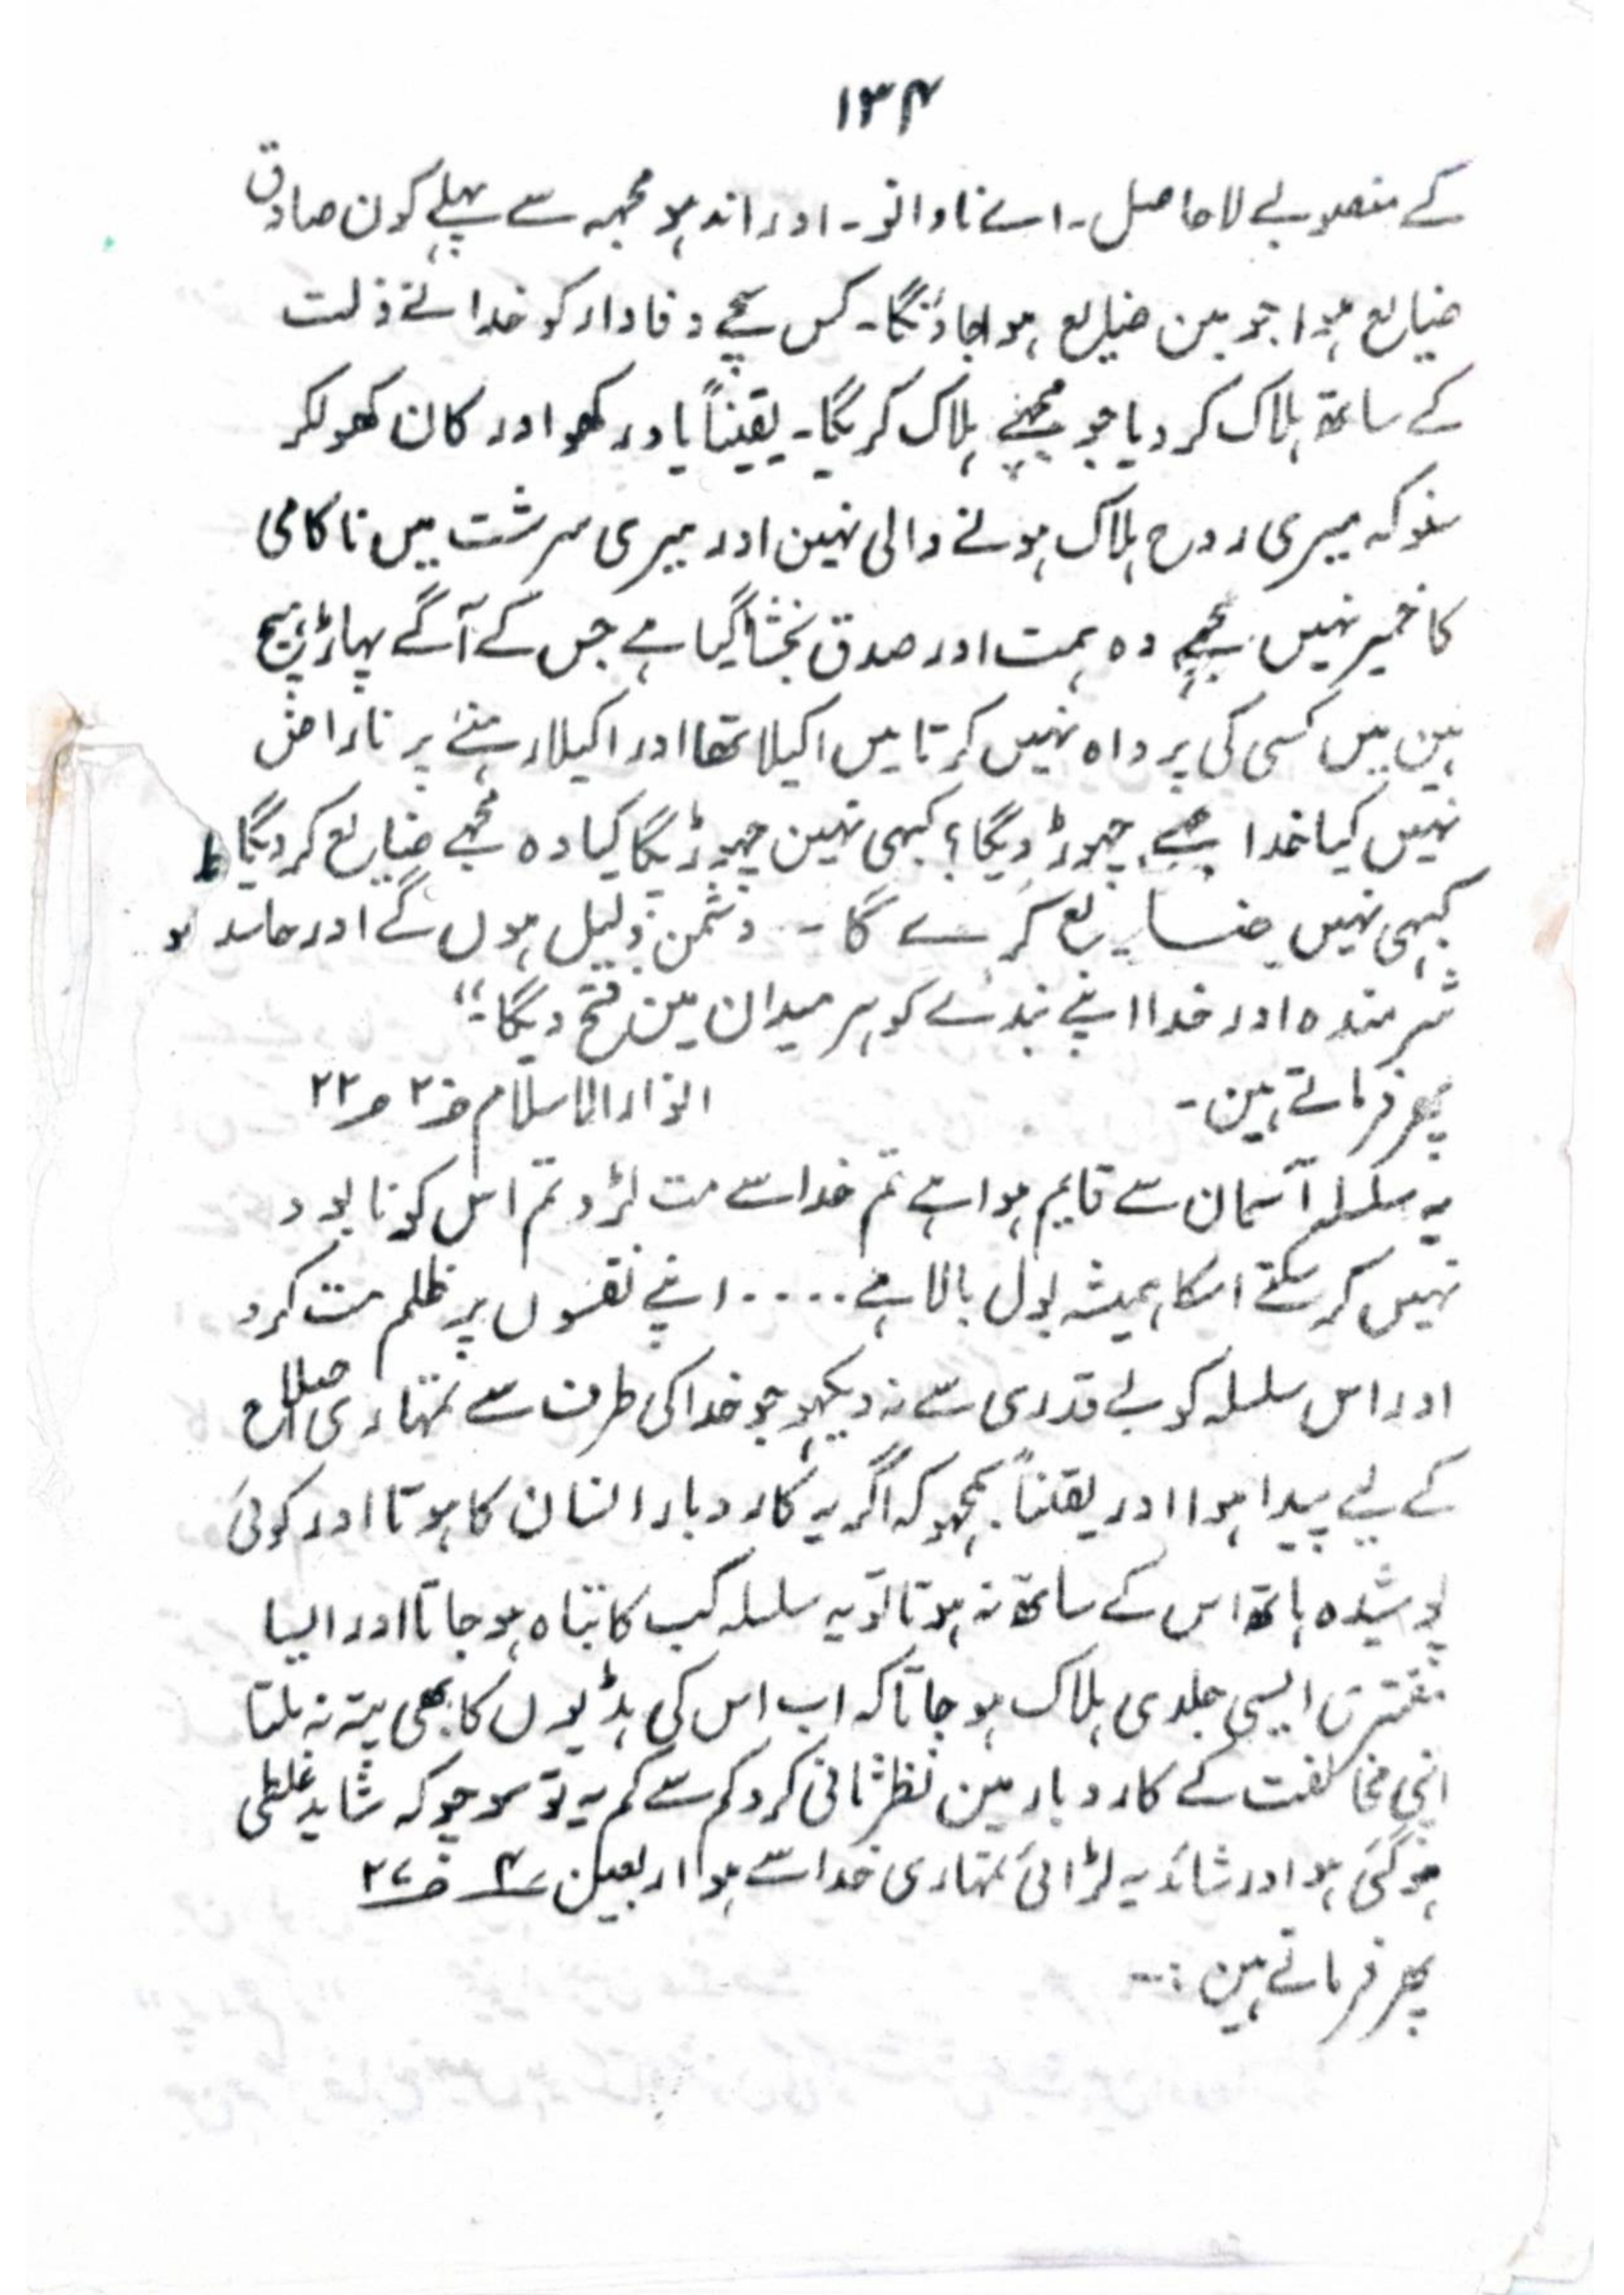 ۱۳۴
کے منصوبے لاحاصل۔ اے نادانو۔ اور اندہو مجہہ سے پہلے کون صادق
ضایع ہوا جو مین ضایع ہو جاؤنگا۔ کس سچے وفادار کو خدا نے ذلت
کے ساتھ ہلاک کر دیا جو مجہے ہلاک کریگا۔ یقیناً یاد رکھو اور کان کھولکر
سنو کہ میری روح ہلاک ہونے والی نہین اور میری سرشت میں ناکامی
کا خمیر نہیں مجہے وہ ہمت اور صدق بخشا گیا ہے جس کے آگے پہاڑ ہیچ
ہین میں کسی کی پرواہ نہیں کرتا میں اکیلا تھا اور اکیلا رہنے پر ناراض
نہیں کیا خدا مجہے چہوڑ دیگا؟ کبہی نہین چہوڑیگا کیا وہ مجہے ضایع کر دیگا
کبہی نہیں ضایع کرے گا۔ دشمن ذلیل ہوں گے اور حاسد
شرمندہ اور خدا اپنے بندے کو ہر میدان مین فتح دیگا۔"
پھر فرماتے ہین۔ انوار الاسلام ص۲ ص۲۲
یہ سلسلہ آسمان سے قایم ہوا ہے تم خدا سے مت لڑو تم اس کو نابود
نہیں کر سکتے اسکا ہمیشہ بول بالا ہے ۔۔۔۔ اپنے نفسوں پر ظلم مت کرو
اور اس سلسلہ کو بے قدری سے نہ دیکہو جو خدا کی طرف سے تمہاری اصلاح
کے لیے پیدا ہوا اور یقیناً سمجہو کہ اگر یہ کاروبار انسان کا ہوتا اور کوئی
پوشیدہ ہاتھ اس کے ساتھ نہ ہوتا تو یہ سلسلہ کب کا تباہ ہو جاتا اور ایسا
مفتری ایسی جلدی ہلاک ہو جاتا کہ اب اس کی ہڈیوں کا بھی پتہ نہ ملتا
اپنی مخالفت کے کاروبار مین نظر ثانی کرو کم سے کم یہ تو سوچو کہ شاید غلطی
ہو گئی ہو اور شائد یہ لڑائی تمہاری خدا سے ہو اربعین ۴ ص۲۷
پھر فرماتے ہین :۔